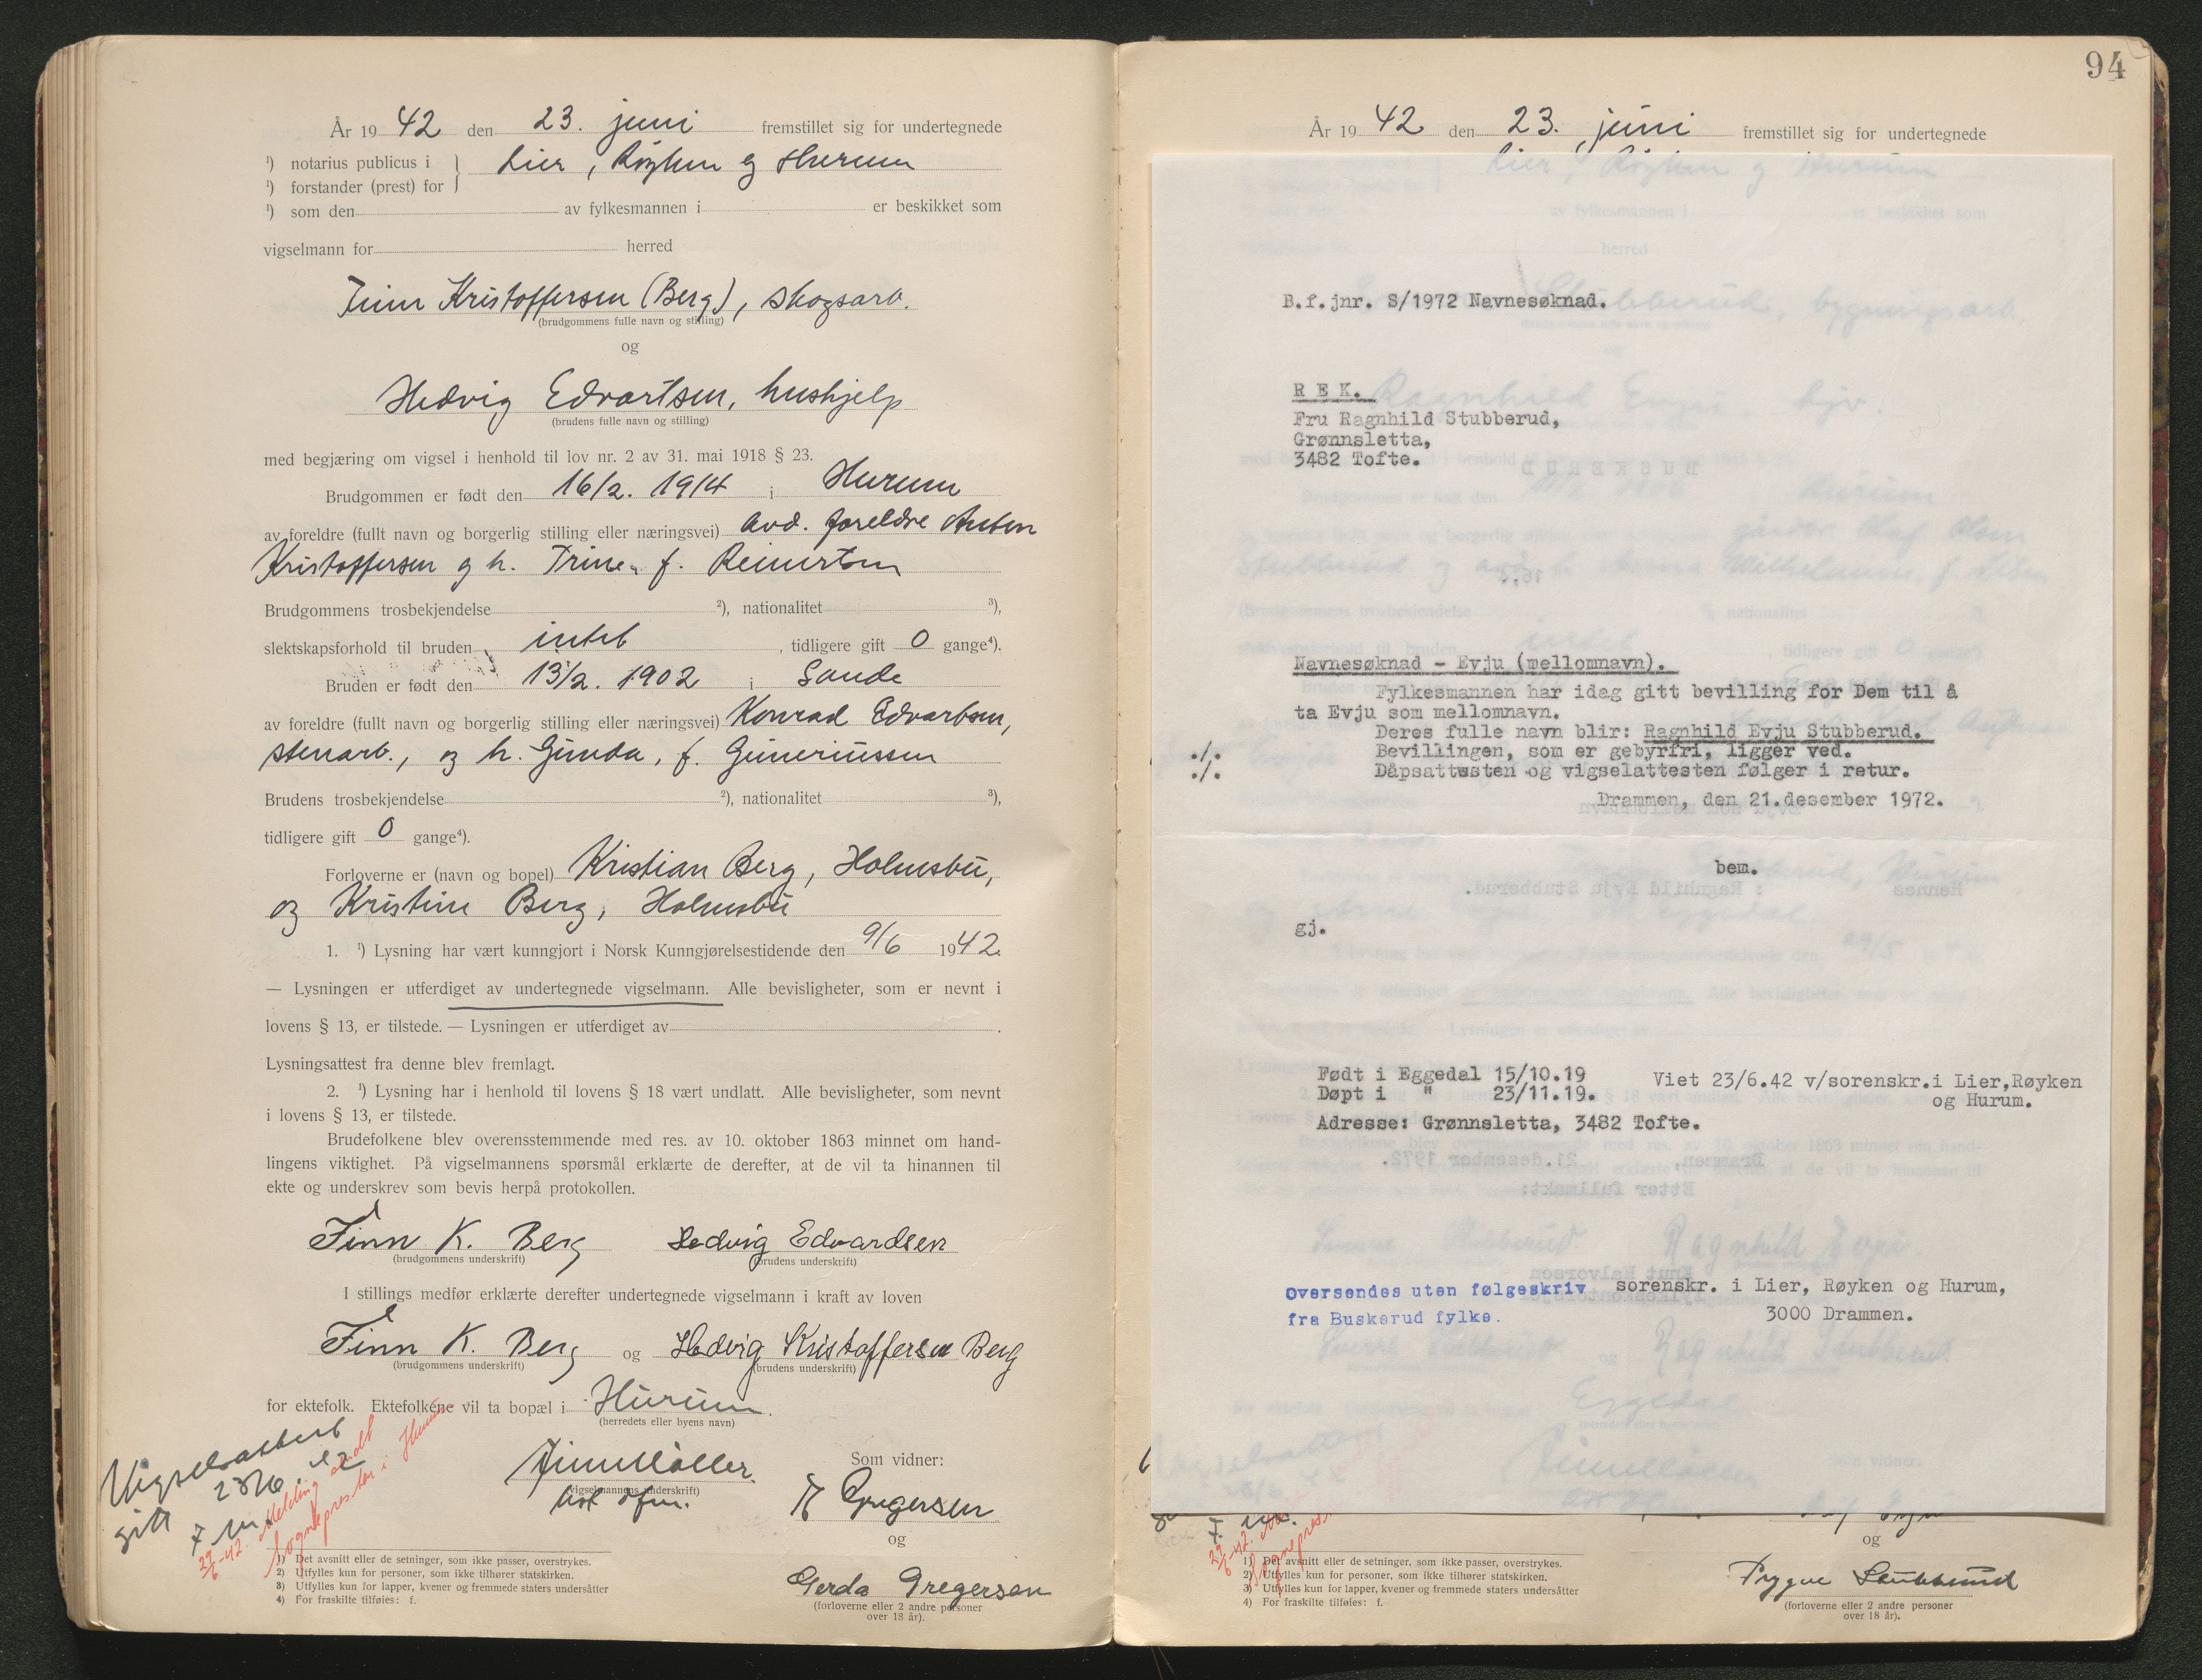 År 19 42 den 23. juni fremstillet sig for undertegnede
¹) notarius publicus i } Lier, Røyken og Hurum
¹) forstander (prest) for
¹) som den av fylkesmannen i er beskikket som
vigselmann for herred
Finn Kristoffersen (Berg), skogsarb.
(brudgommens fulle navn og stilling)
og
Hedvig Edvartsen, hushjelp
(brudens fulle navn og stilling)
med begjæring om vigsel i henhold til lov nr. 2 av 31. mai 1918 § 23.
Brudgommen er født den 16/2. 1914 i Hurum
av foreldre (fullt navn og borgerlig stilling eller næringsvei) avd. foreldre Anton
Kristoffersen og h. Trine, f. Reinertsen
Brudgommens trosbekjendelse ²), nationalitet ³),
slektskapsforhold til bruden intet , tidligere gift 0 gange⁴).
Bruden er født den 13/2. 1902 i Sande
av foreldre (fullt navn og borgerlig stilling eller næringsvei) Konrad Edvartsen,
stenarb., og h. Gunda, f. Guneriussen
Brudens trosbekjendelse ²), nationalitet ³),
tidligere gift 0 gange⁴).
Forloverne er (navn og bopel) Kristian Berg, Holmsbu,
og Kristine Berg, Holmsbu
1. ¹) Lysning har vært kunngjort i Norsk Kunngjørelsestidende den 9/6 1942.
— Lysningen er utferdiget av undertegnede vigselmann. Alle bevisligheter, som er nevnt i
lovens § 13, er tilstede. — Lysningen er utferdiget av .
Lysningsattest fra denne blev fremlagt.
2. ¹) Lysning har i henhold til lovens § 18 vært undlatt. Alle bevisligheter, som nevnt
i lovens § 13, er tilstede.
Brudefolkene blev overensstemmende med res. av 10. oktober 1863 minnet om hand-
lingens viktighet. På vigselmannens spørsmål erklærte de derefter, at de vil ta hinannen til
ekte og underskrev som bevis herpå protokollen.
Finn K. Berg Hedvig Edvardsen
(brudgommens underskrift) (brudens underskrift)
I stillings medfør erklærte derefter undertegnede vigselmann i kraft av loven
Finn K. Berg og Hedvig Kristoffersen Berg
(brudgommens underskrift) (brudens underskrift)
for ektefolk. Ektefolkene vil ta bopæl i Hurum.
(herredets eller byens navn)
Vigselsattest
gitt 23/6. 42
29/6-42. Melding sendt
sogneprest i Hurum
Som vidner:
(vigselmannens underskrift)
Gregersen
og
Gerda Gregersen
(forloverne eller 2 andre personer
over 18 år).
1) Det avsnitt eller de setninger, som ikke passer, overstrykes.
2) Utfylles kun for personer, som ikke tilhører statskirken.
3) Utfylles kun for lapper, kvener og fremmede staters undersåtter
4) For fraskilte tilføies: f.
94
År 19 42 den 23. juni fremstillet sig for undertegnede
B.f.jnr. S/1972 Navnesøknad.
R E K.
Fru Ragnhild Stubberud,
Grønnsletta,
3482 Tofte.
Navnesøknad - Evju (mellomnavn).
Fylkesmannen har idag gitt bevilling for Dem til å
ta Evju som mellomnavn.
Deres fulle navn blir: Ragnhild Evju Stubberud.
./. Bevillingen, som er gebyrfri, ligger ved.
./. Dåpsattesten og vigselattesten følger i retur.
Drammen, den 21.desember 1972.
bem.
gj.
Født i Eggedal 15/10.19 Viet 23/6.42 v/sorenskr.i Lier,Røyken
Døpt i " 23/11.19. og Hurum.
Adresse: Grønnsletta, 3482 Tofte.
Oversendes uten følgeskriv sorenskr. i Lier, Røyken og Hurum,
fra Buskerud fylke. 3000 Drammen.
og
Trygve Stubberud
(forloverne eller 2 andre personer
over 18 år).
1) Det avsnitt eller de setninger, som ikke passer, overstrykes.
2) Utfylles kun for personer, som ikke tilhører statskirken.
3) Utfylles kun for lapper, kvener og fremmede staters undersåtter
4) For fraskilte tilføies: f.